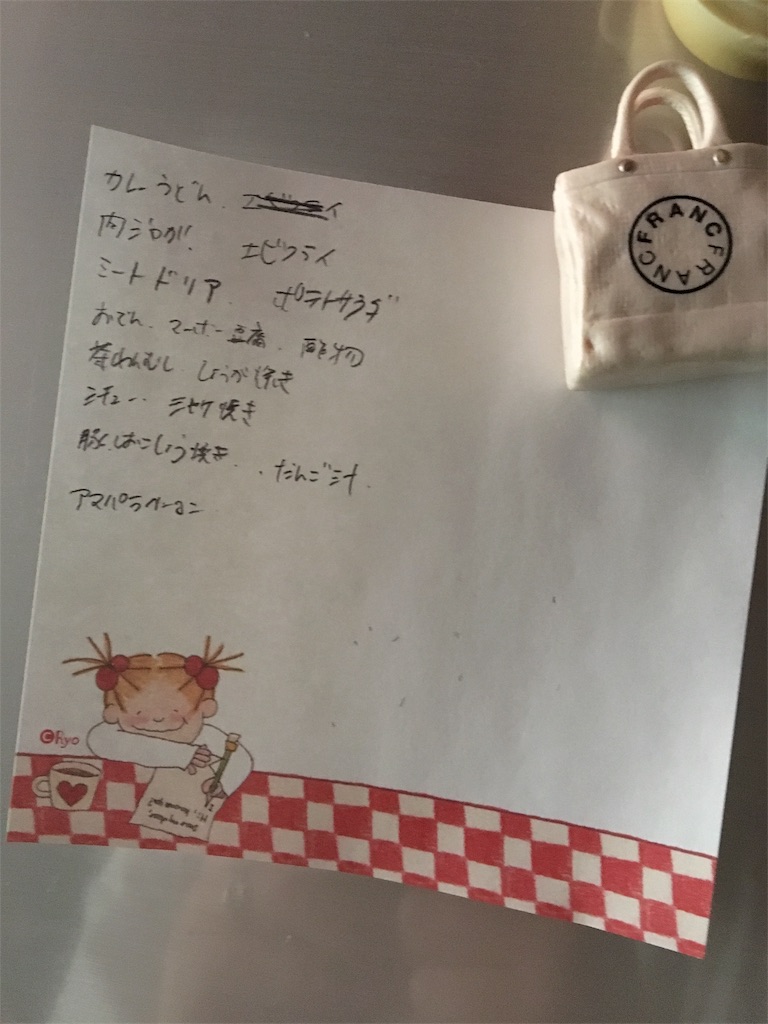 カレーうどん エビフライ
肉ジャが エビフライ
ミートドリア ポテトサラダ
おでん マーボー豆腐 酢物
茶わんむし しょうが焼き
シチュー シャケ焼き
豚しおこしょう焼き だんご汁
アスパラベーコン
FRANCFRANC
©Ryo